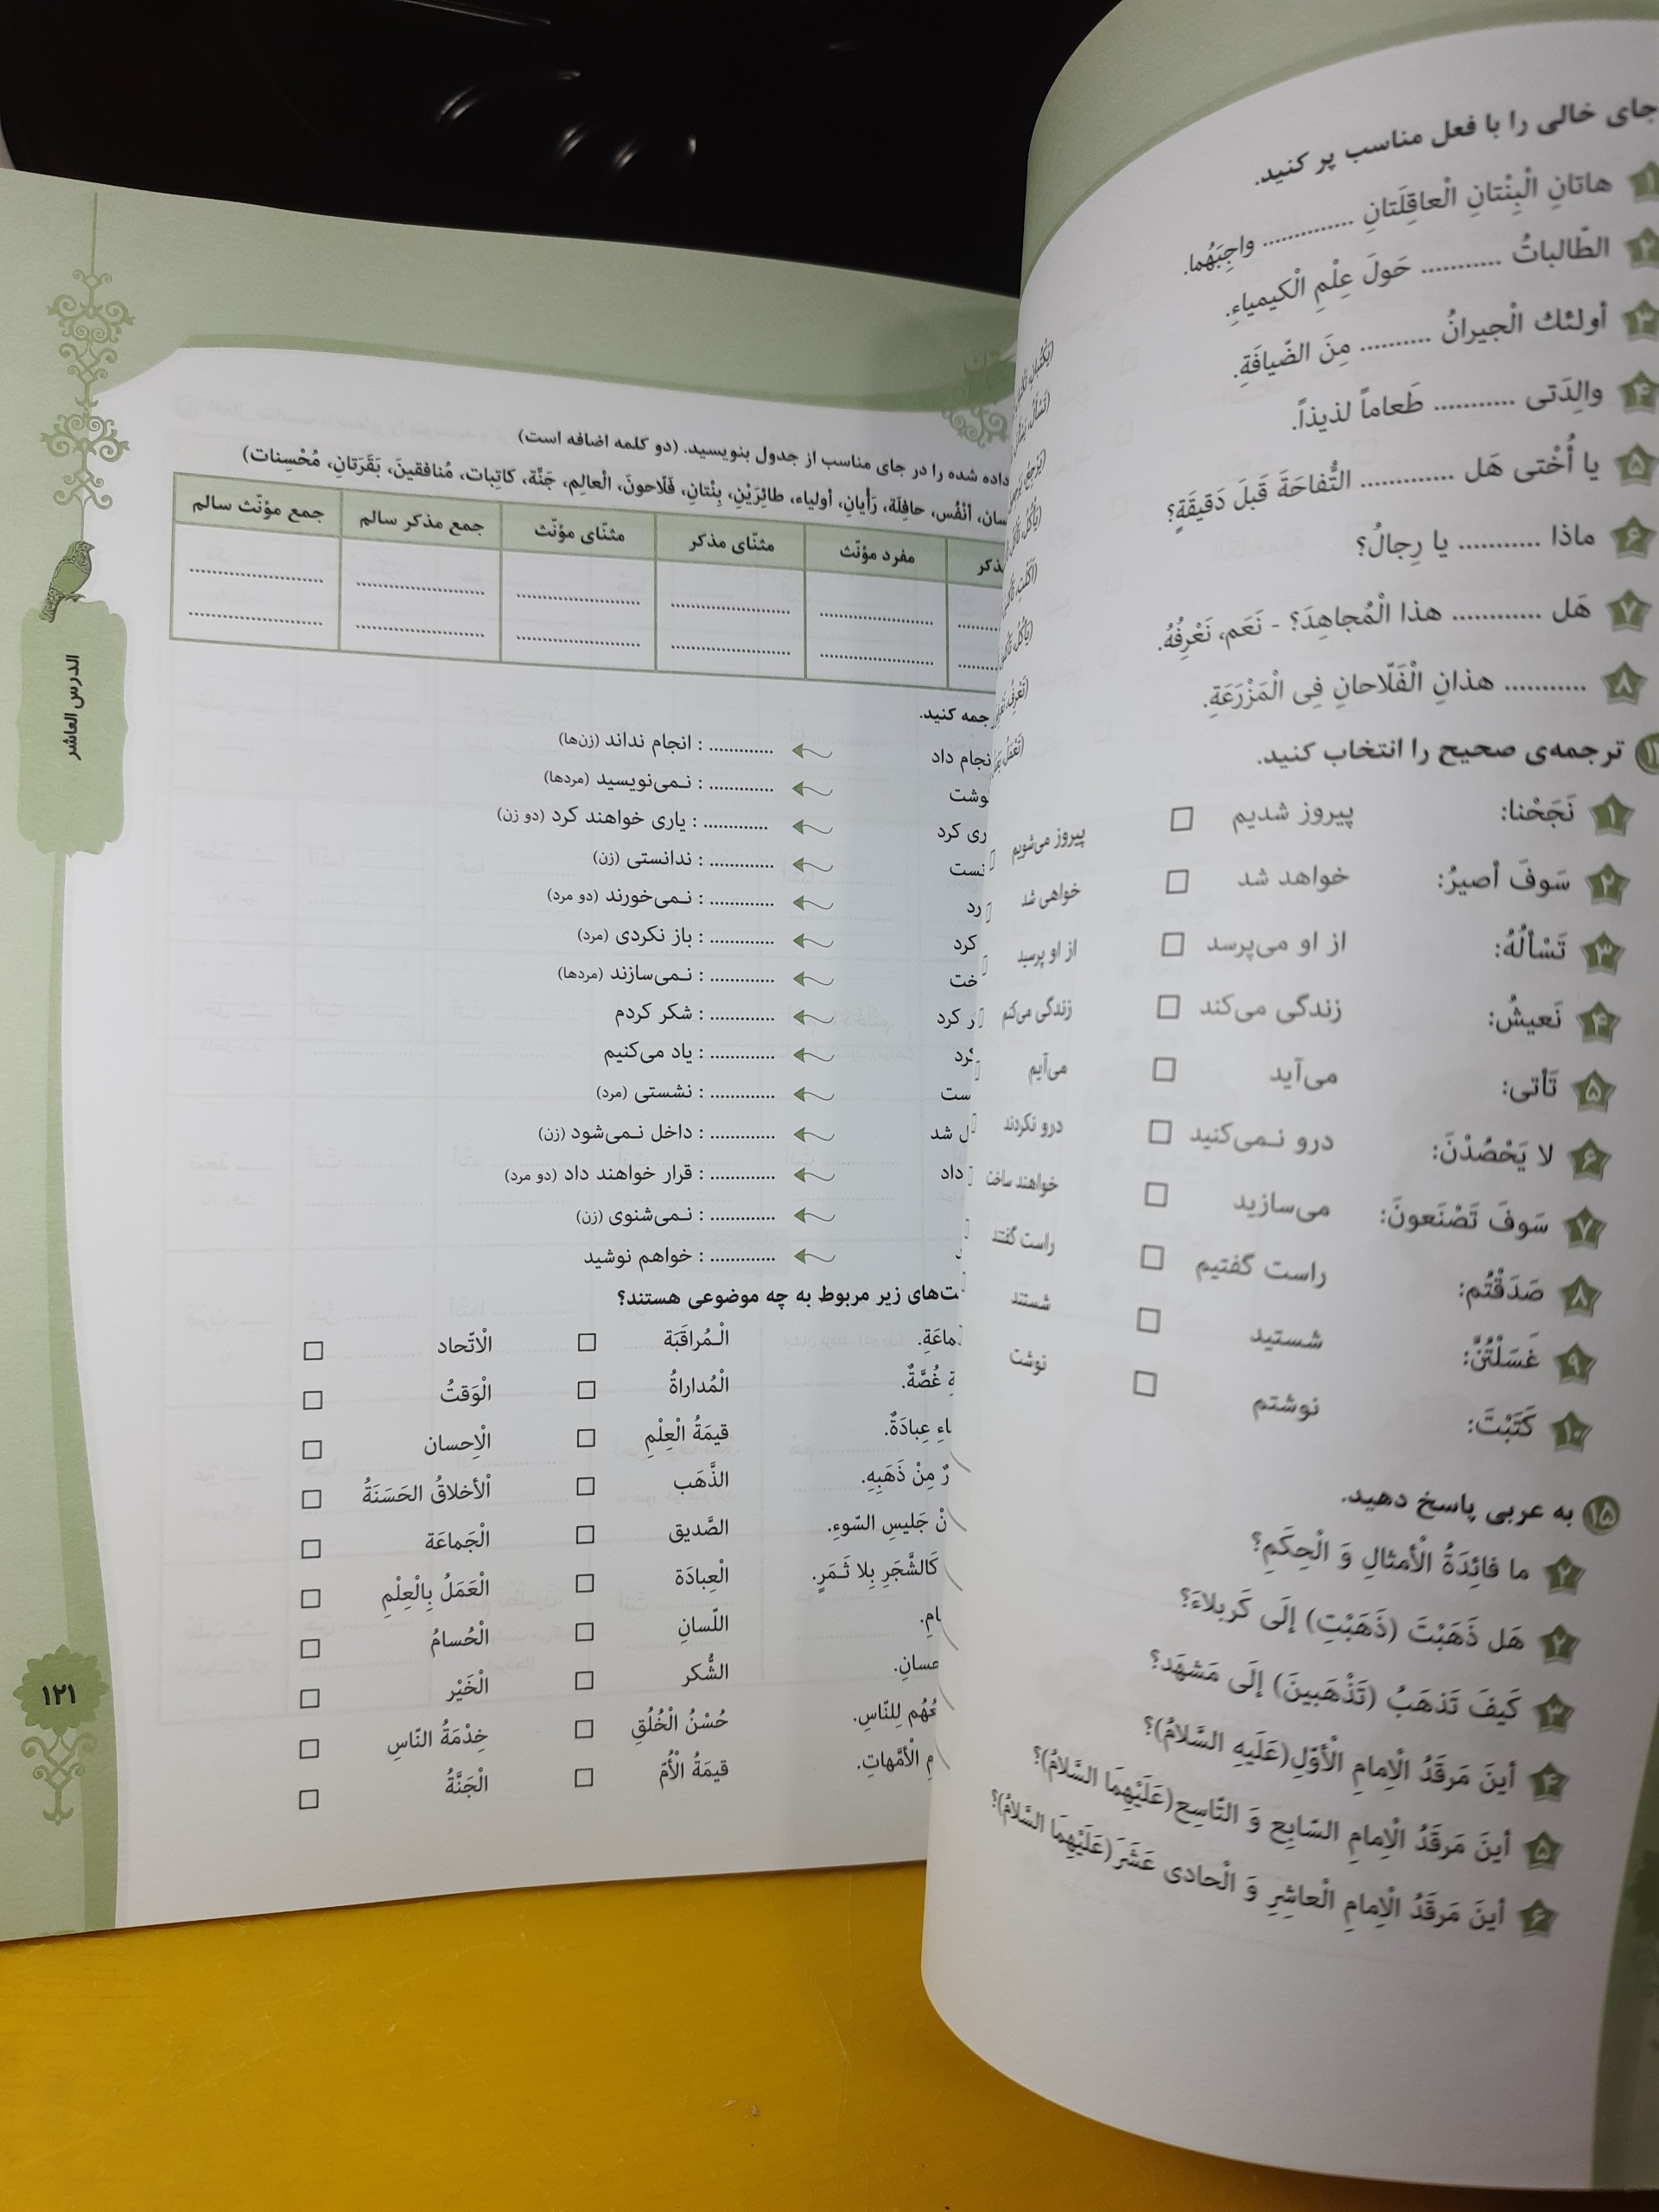 جای خالی را با فعل مناسب پر کنید.
۱ هاتانِ الْبِنْتانِ الْعاقِلَتانِ .............. واجِبَهُما.
۲ الطّالباتُ ............ حَولَ عِلْمِ الْكیمیاءِ.
۳ أولئك الْجیرانُ ........... مِنَ الضّیافَةِ.
۴ والِدَتی ............ طَعاماً لذیذاً.
۵ یا أُخْتی هَل .............. التُّفاحَةَ قَبلَ دَقیقَةٍ؟
۶ ماذا ............ یا رِجالُ؟
۷ هَل ............. هذا الْمُجاهِدَ؟ - نَعَم، نَعْرِفُهُ.
۸ ............ هذانِ الْفَلّاحانِ فِی الْمَزْرَعَةِ.
ترجمه‌ی صحیح را انتخاب کنید.
۱ نَجَحْنا: پیروز شدیم □ پیروز می‌شویم
۲ سَوفَ أصیرُ: خواهد شد □ خواهی شد
۳ تَسْألُهُ: از او می‌پرسد □ از او پرسید
۴ نَعیشُ: زندگی می‌کند □ زندگی می‌کنم
۵ تَأتی: می‌آید □ می‌آیم
۶ لا یَحْصُدْنَ: درو نـمی‌کنید □ درو نکردند
۷ سَوفَ تَصْنَعونَ: می‌سازید □ خواهند ساخت
۸ صَدَقْتُم: راست گفتیم □ راست گفتند
۹ غَسَلْتُنَّ: شستید □ شستند
۱۰ كَتَبْتَ: نوشتم □ نوشت
۱۵ به عربی پاسخ دهید.
۲ ما فائِدَةُ الْأمثالِ وَ الْحِكَمِ؟
۲ هَل ذَهَبْتَ (ذَهَبْتِ) إلَی كَربلاءَ؟
۳ كَیفَ تَذهَبُ (تَذْهَبینَ) إلَی مَشهَد؟
۴ أینَ مَرقَدُ الْاِمامِ الْأوّلِ(عَلَیهِ السَّلامُ)؟
۵ أینَ مَرقَدُ الْاِمامِ السّابِعِ وَ التّاسِعِ(عَلَیْهِمَا السَّلامُ)؟
۶ أینَ مَرقَدُ الْاِمامِ الْعاشِرِ وَ الْحادی عَشَرَ(عَلَیْهِمَا السَّلامُ)؟
داده شده را در جای مناسب از جدول بنویسید. (دو کلمه اضافه است)
أنْفُس، حافِلَة، رَأْیانِ، أولیاء، طائِرَیْنِ، بِنْتانِ، فَلّاحونَ، الْعالِم، جَنَّة، كاتِبات، مُنافقینَ، بَقَرَتانِ، مُحْسِنات)
مفرد مؤنّث مثنّای مذکر مثنّای مؤنّث جمع مذکر سالم جمع مؤنّث سالم
............. : انجام نداند (زن‌ها)
............. : نـمی‌نویسید (مردها)
............. : یاری خواهند کرد (دو زن)
............. : ندانستی (زن)
............. : نـمی‌خورند (دو مرد)
............. : باز نکردی (مرد)
............. : نـمی‌سازند (مردها)
............. : شکر کردم
............. : یاد می‌کنیم
............. : نشستی (مرد)
............. : داخل نـمی‌شود (زن)
............. : قرار خواهند داد (دو مرد)
............. : نـمی‌شنوی (زن)
............. : خواهم نوشید
زیر مربوط به چه موضوعی هستند؟
الْـمُراقَبَة □ الْاتّحاد □
غُصَّةٌ. الْمُداراةُ □ الْوَقتُ □
عِبادَةٌ. قیمَةُ الْعِلْمِ □ الْاِحسان □
مِنْ ذَهَبِهِ. الذَّهَب □ اْلأخلاقُ الحَسَنَةُ □
جَلیسِ السّوءِ. الصَّدیق □ الْجَماعَة □
كَالشَّجَرِ بِلا ثَـمَرٍ. الْعِبادَة □ الْعَمَلُ بِالْعِلْمِ □
اللّسانِ □ الْحُسامُ □
الشُّكر □ الْخَیْر □
لِلنّاسِ. حُسْنُ الْخُلُقِ □ خِدْمَةُ النّاسِ □
الْأمَّهاتِ. قیمَةُ الْأُمّ □ الْجَنَّةُ □
الدرس العاشر
۱۲۱